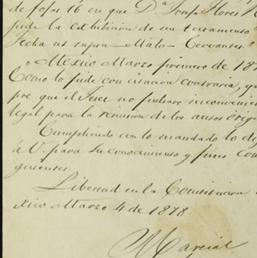 de fojas 16 en que Dª Josefa Flores
pide la exhibicion de un testamento
Fecha ut supra — Malo — Cervantes
Mexico Marzo primero de 187
Como lo pide con citacion contraria, y
pre que el Juez no pulsare inconvenien
legal para la remision de los autos orig
Cumpliendo con lo mandado lo di
a U. para su conocimiento y fines con
guientes.
Libertad en la Constitucion
xico Marzo 4 de 1878